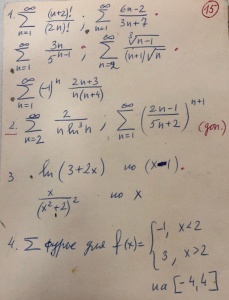 1. ∑_{n=1}^{∞} (n+2)!/(2n)! ; ∑_{n=1}^{∞} (6n-2)/(3n+7) (15)
∑_{n=1}^{∞} 3n/5^{n-1} ; ∑_{n=2}^{∞} ∛(n-1)/((n+1)√n)
∑_{n=1}^{∞} (-1)^n (2n+3)/(n(n+4))
2. ∑_{n=2}^{∞} 2/(n ln^3 n) ; ∑_{n=1}^{∞} ((2n-1)/(5n+2))^{n+1} (доп.)
3. ln(3+2x) по (x-1).
x/(x^2+2)^2 по x
4. ∑ Фурье для f(x)= { -1, x<2
3, x>2
на [-4,4]